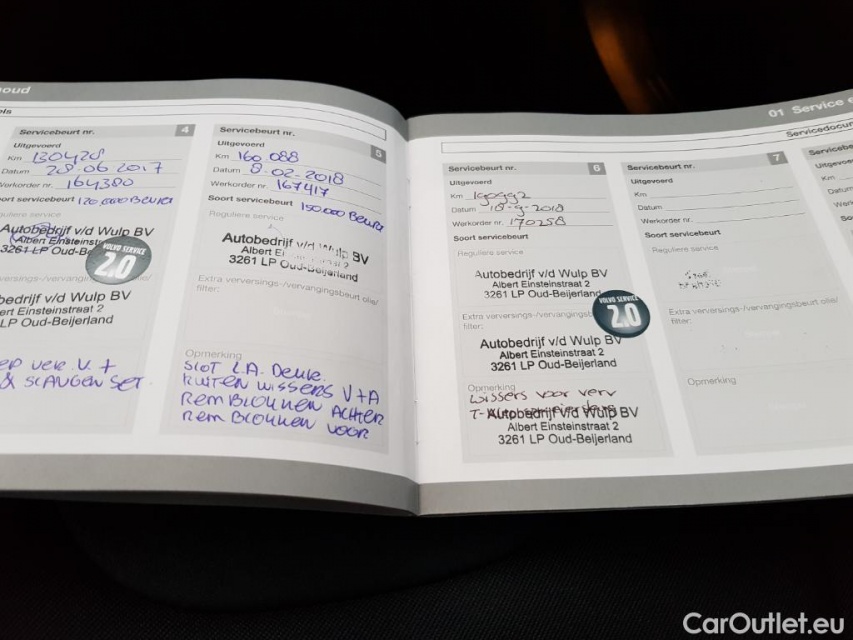 oud
01 Service e
els
Servicedocum
Servicebeurt nr. 4
Uitgevoerd
Km 130428
Datum 28.06.2017
Werkorder nr. 164380
oort servicebeurt 120.000 Beurt
guliere service
Autobedrijf v/d Wulp BV
Albert Einsteinst
3261 LP Oud-Be
VOLVO SERVICE
2.0
a verversings-/vervanging
bedrijf v/d Wulp BV
Einsteinstraat 2
LP Oud-Beijerland
& SLANGEN SET
Servicebeurt nr. 5
Uitgevoerd
Km 160.088
Datum 8.02-2018
Werkorder nr. 167417
Soort servicebeurt 150.000 Beurt
Reguliere service
Autobedrijf v/d Wulp BV
Albert Einsteinstraat 2
3261 LP Oud-Beijerland
Extra verversings-/vervangingsbeurt olie/
filter:
Opmerking
SLOT L.A. Deur.
RUITEN WISSERS V+A
REMBLOKKEN ACHTER
REMBLOKKEN VOOR
Servicebeurt nr. 6
Uitgevoerd
Km
Datum 18-9-2018
Werkorder nr. 170258
Soort servicebeurt
Reguliere service
Autobedrijf v/d Wulp BV
Albert Einsteinstraat 2
3261 LP Oud-Beijerland
VOLVO SERVICE
2.0
Extra verversings-/vervangingsb
filter:
Autobedrijf v/d Wulp BV
Albert Einsteinstraat 2
3261 LP Oud-Beijerland
Opmerking
Wissers voor verv
Autobedrijf v/d Wulp BV
Albert Einsteinstraat 2
3261 LP Oud-Beijerland
Servicebeurt nr. 7
Uitgevoerd
Km
Datum
Werkorder nr.
Soort servicebeurt
Reguliere service
Extra verversings-/vervangingsbeurt olie/
filter:
Opmerking
Servicebe
Uitgevoe
Km
Datum
Werk
Soor
Reg
Ex
filte
CarOutlet.eu